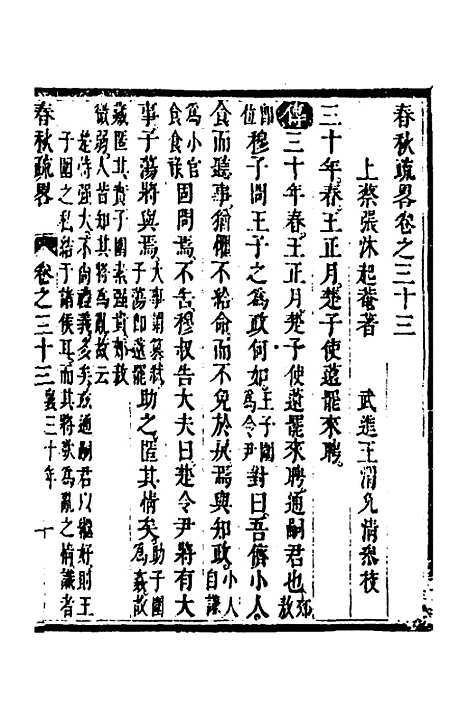 春秋疏畧卷之三十三
上蔡張沐起菴著　武進王渭允清叅校
三十年春王正月楚子使薳罷來聘
傳三十年春王正月楚子使薳罷來聘通嗣君也郊敖
卽位穆子問王子之爲政何如王子圍爲令尹對曰吾儕小人
食而聽事猶懼不給命而不免於戾焉與知政小人自謙
爲小官食食祿固問焉不告穆叔告大夫曰楚令尹將有大
事子蕩將與焉大事謂簒弒子蕩卽薳罷助之匿其情矣助子圍爲亂故
藏匿其實子圍素强其郟敖
微弱人皆知其將爲亂故云
楚恃强大不尚禮義多矣茲通嗣君以繼好則王
子圍之私結于諸侯耳而其將欲爲亂之情識者
春秋疏畧　卷之三十三襄三十年　十